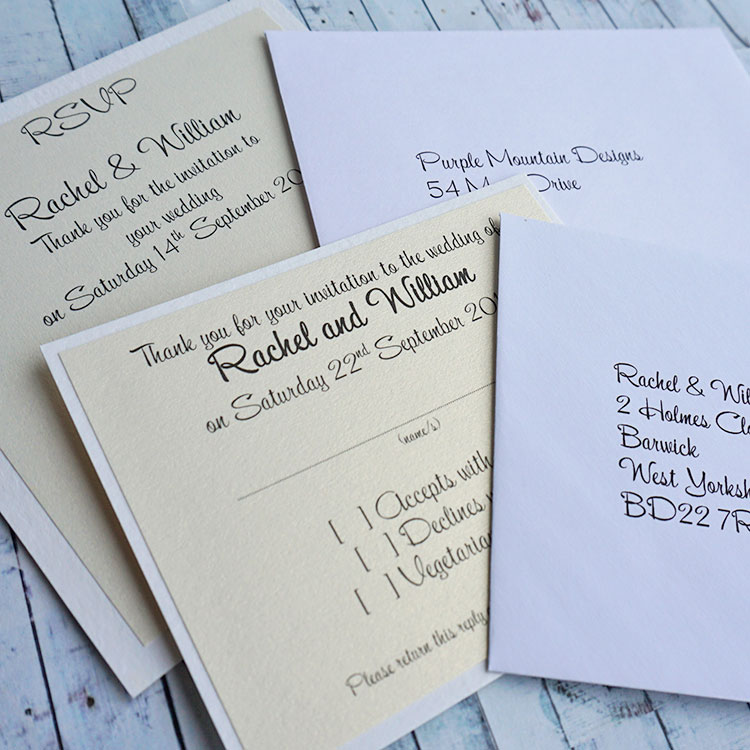 RSVP
Rachel & William
Thank you for the invitation to
your wedding
on Saturday 14th September
Purple Mountain Designs
54 Drive
Thank you for your invitation to the wedding of
Rachel and William
on Saturday 22nd September
(name/s)
[ ] Accepts with
[ ] Declines
[ ] Vegetarian
Please return this reply
Rachel &
2 Holmes
Barwick
West
BD22